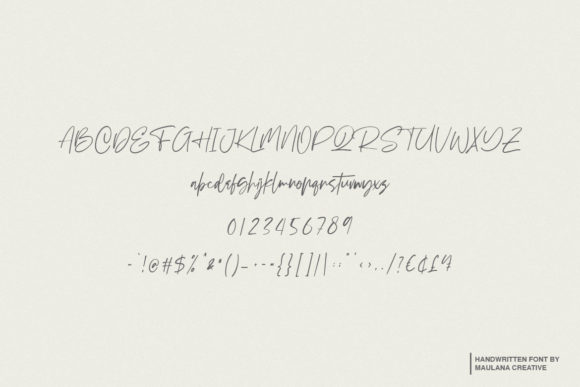 ABCDEFGHIJKLMNOPQRSTUVWXYZ
abcdefghijklmnopqrstuvwxyz
0123456789
-`!@#$%^&*()_+-={}[]|\:;"'<>,./?€¢£¥
HANDWRITTEN FONT BY
MAULANA CREATIVE